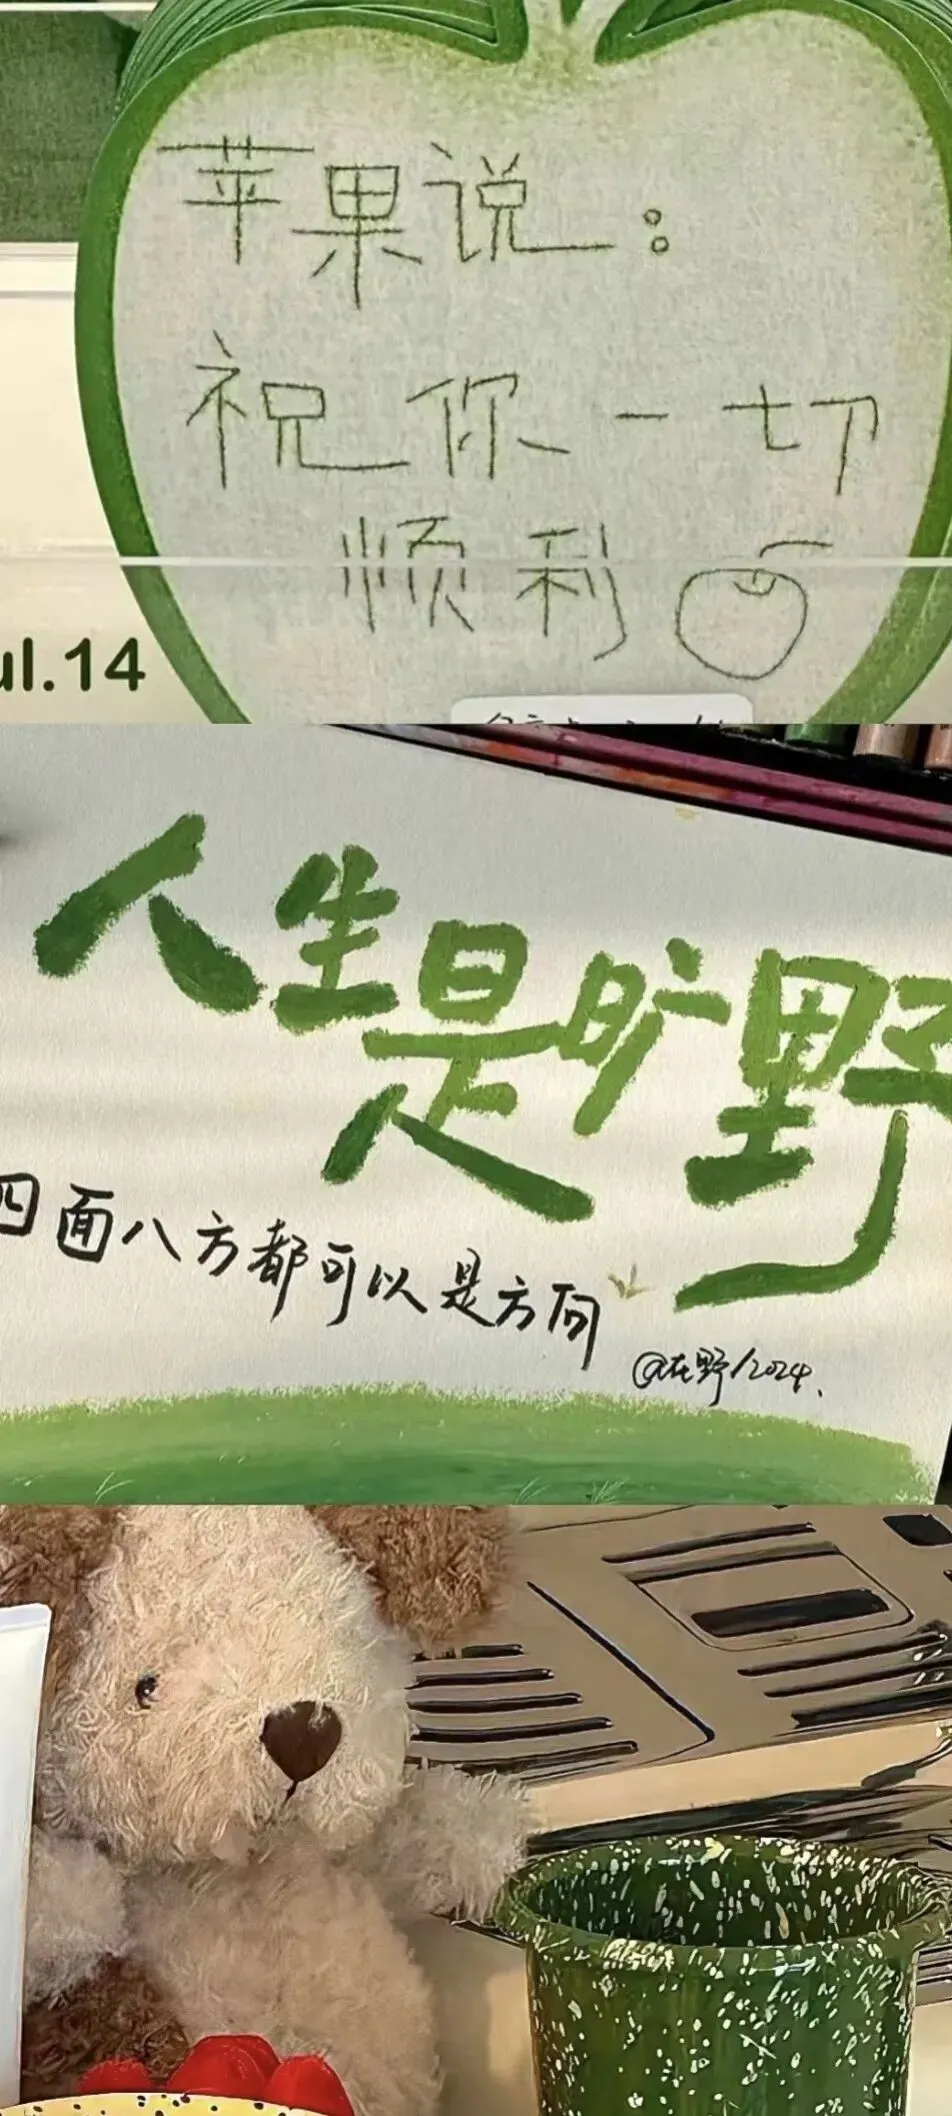 苹果说：
祝你一切
顺利
ul.14
人生是旷野
四面八方都可以是方向
@在野/2024.